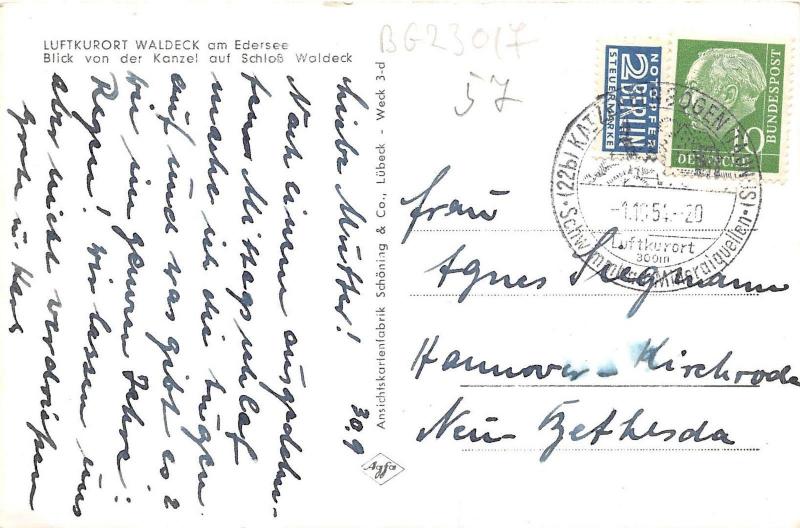 LUFTKURORT WALDECK am Edersee
Blick von der Kanzel auf Schloß Waldeck
BG23017
57
Liebe Mutter! 30.9
Nach einem ausgedehn-
ten Mittagsschlaf
mache ich die Augen
auf und was gibt es?
Regen! Wir lassen uns
aber nicht verdrießen
Grete u. Hans
Ansichtskartenfabrik Schöning & Co., Lübeck - Weck 3-d
Agfa
NOTOPFER
2 BERLIN
STEUERMARKE
DEUTSCHE
BUNDESPOST
10
(22b) KATZENELNBOGEN (TAUNUS)
-1.10.54.-20
Luftkurort
300m
Schwimmbad Mineralquellen
Frau
Agnes Siegmann
Hannover-Kirchrode
Neu-Bethesda